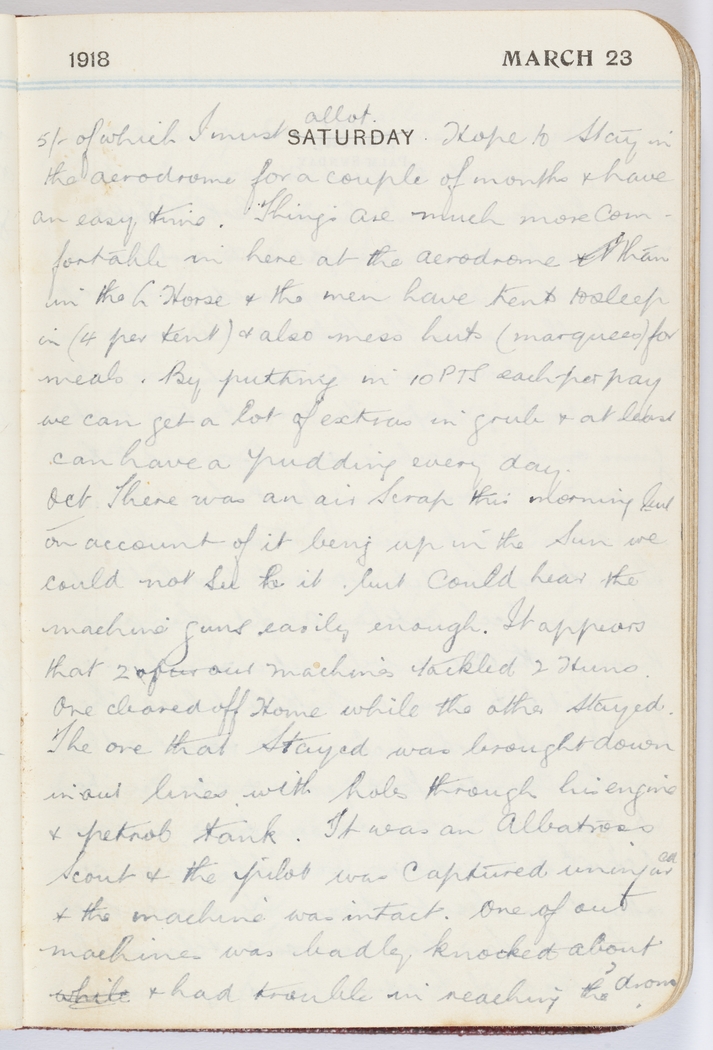 1918 MARCH 23
allot.
5/- of which I must SATURDAY. Hope to stay in
the aerodrome for a couple of months & have
an easy time. Things are much more com-
fortable in here at the aerodrome than
in the L Horse & the men have tent to sleep
in (4 per tent) & also mess huts (marquees) for
meals. By putting in 10 PTS each per pay
we can get a lot of extras in grub & at least
can have a pudding every day.
Oct There was an air scrap this morning but
on account of it being up in the sun we
could not see it but could hear the
machine guns easily enough. It appears
that 2 of our machines tackled 2 Huns.
One cleared off Home while the other stayed.
The one that stayed was brought down
in our lines with holes through his engine
& petrol tank. It was an Albatross
Scout & the pilot was captured uninjured
& the machine was intact. One of our
machines was badly knocked about
while & had trouble in reaching the 'drome